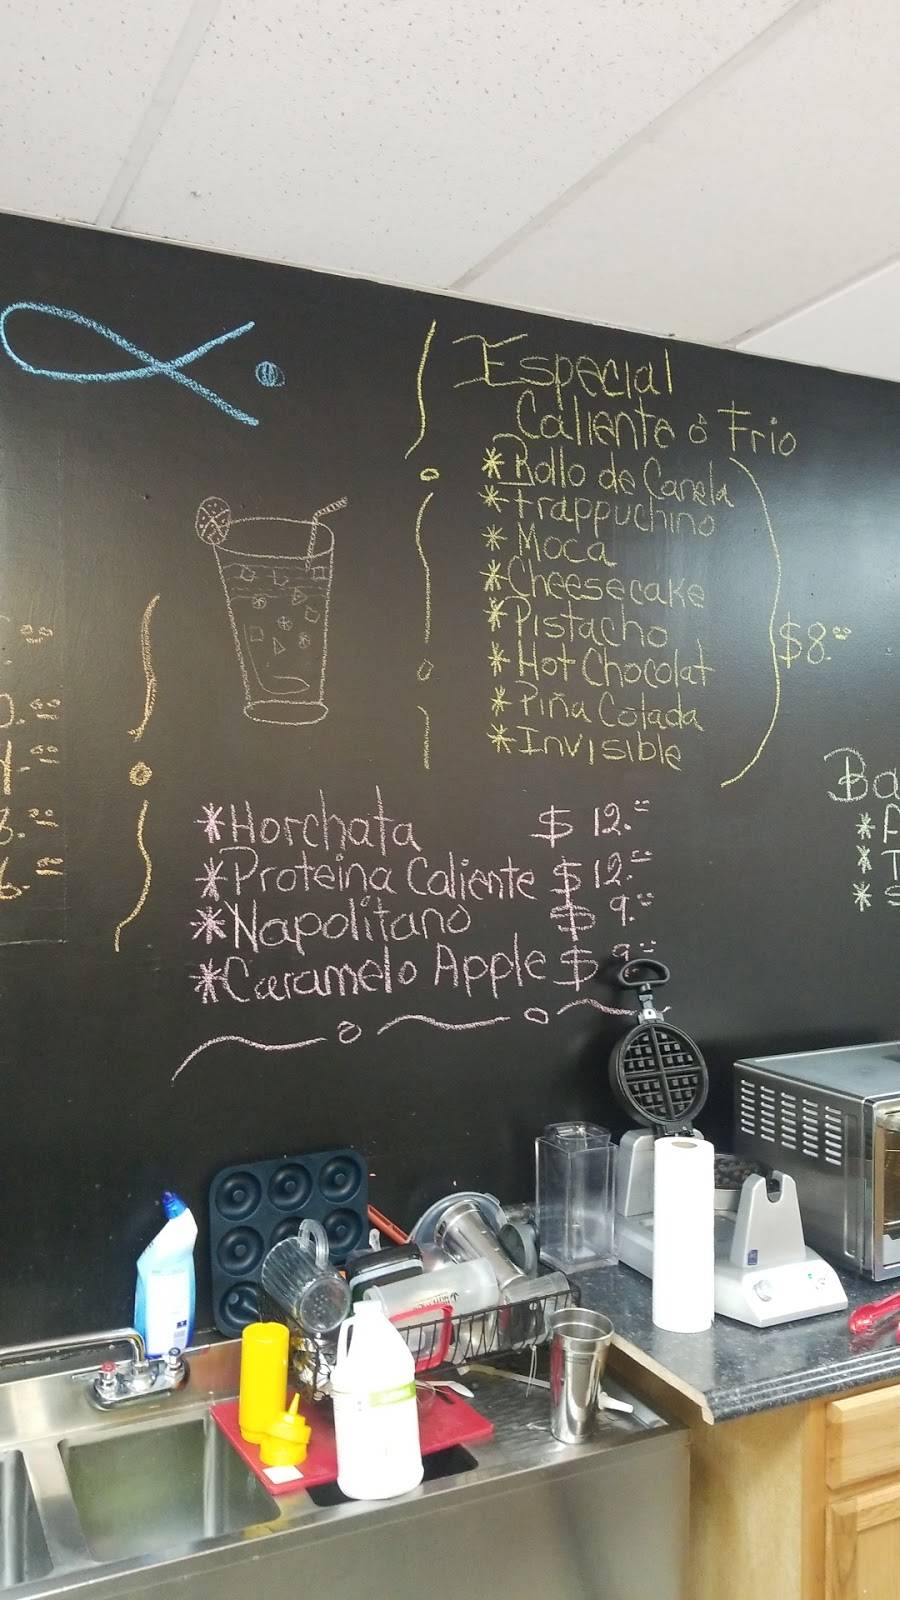 Especial
Caliente ó Frio
*Rollo de Canela
*frappuchino
*Moca
*Cheesecake
*Pistacho
*Hot Chocolat
*Piña Colada
*Invisible
$8.00
*Horchata $12.00
*Proteina Caliente $12.00
*Napolitano $9.00
*Caramelo Apple $9.00
Ba